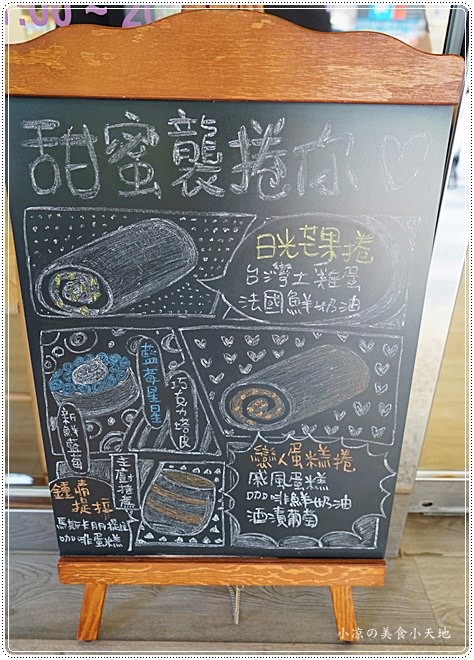 甜蜜襲捲你
日光芒果捲
台灣土雞蛋
法國鮮奶油
藍莓星星
巧克力塔皮
新鮮藍莓
戀人蛋糕捲
戚風蛋糕
咖啡鮮奶油
酒漬葡萄
主廚推薦
鍾情
提拉
馬斯卡朋提拉
咖啡蛋糕
小凉の美食小天地